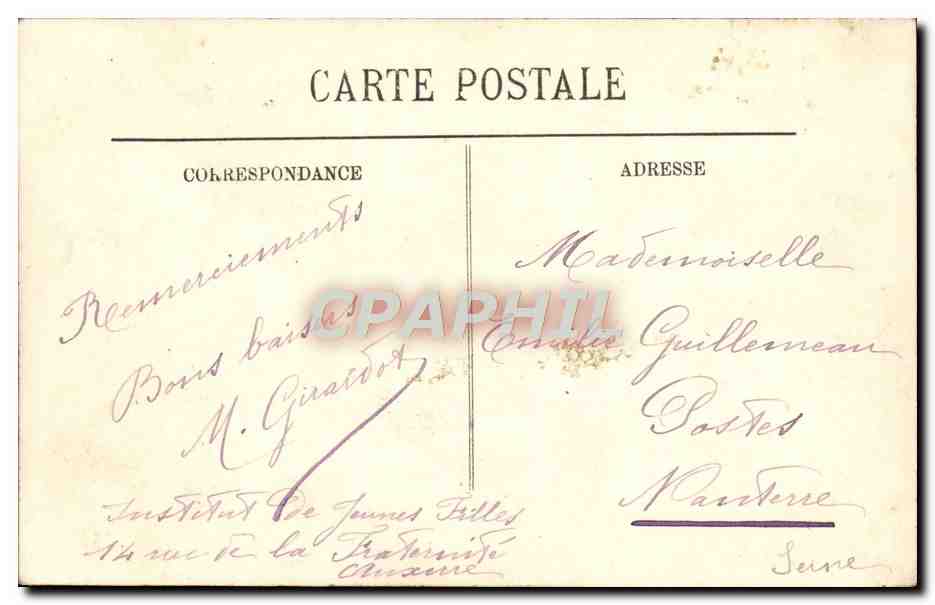 CARTE POSTALE
CORRESPONDANCE
Remerciements
Bons baisers
M. Girardot
Institut de Jeunes Filles
14 rue de la Fraternité
Auxerre
ADRESSE
Mademoiselle
Emilie Guillemeau
Postes
Nanterre
Seine
CPAPHIL